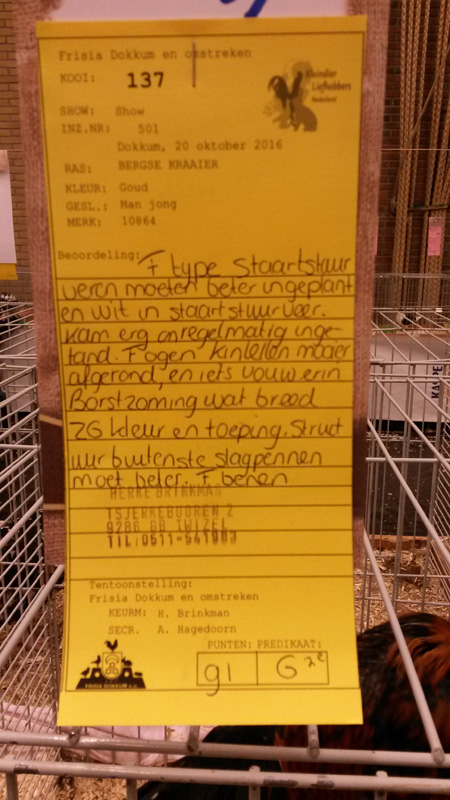 Frisia Dokkum en omstreken
KOOI: 137
Kleindier
Liefhebbers
Nederland
SHOW: Show
INZ.NR: 501
Dokkum, 20 oktober 2016
RAS: BERGSE KRAAIER
KLEUR: Goud
GESL.: Man jong
MERK: 10864
Beoordeling: F type Staartstuur
veren moeten beter ingeplant
en wit in staartstuurveer.
Kam erg onregelmatig inge-
tand. F ogen Kinlellen mooier
afgerond, en iets vouw erin
Borstzoming wat breed
ZG kleur en toeping. Struct
uur buitenste slagpennen
moet beter. F benen
HERKE BRINKMAN
TSJERKEBUOREN 2
9286 GB TWIZEL
TIL: 0511-541903
Tentoonstelling:
Frisia Dokkum en omstreken
KEURM: H. Brinkman
SECR. A. Hagedoorn
PUNTEN: PREDIKAAT:
91 G 2e
FRISIA DOKKUM E.O.